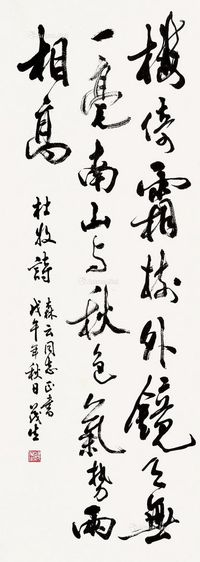 樓倚霜樹外鏡天無
一毫南山与秋色氣勢兩
相高
杜牧詩
森云同志正書
戊午年秋日茂生